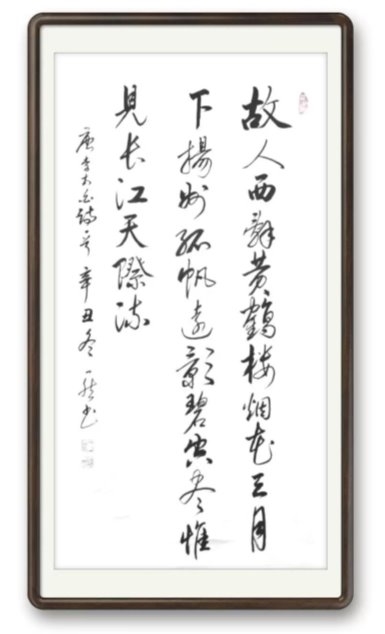 故人西辞黄鹤楼烟花三月
下揚州孤帆遠影碧空尽惟
見长江天際流
唐李太白詩一首辛丑冬一㷰书